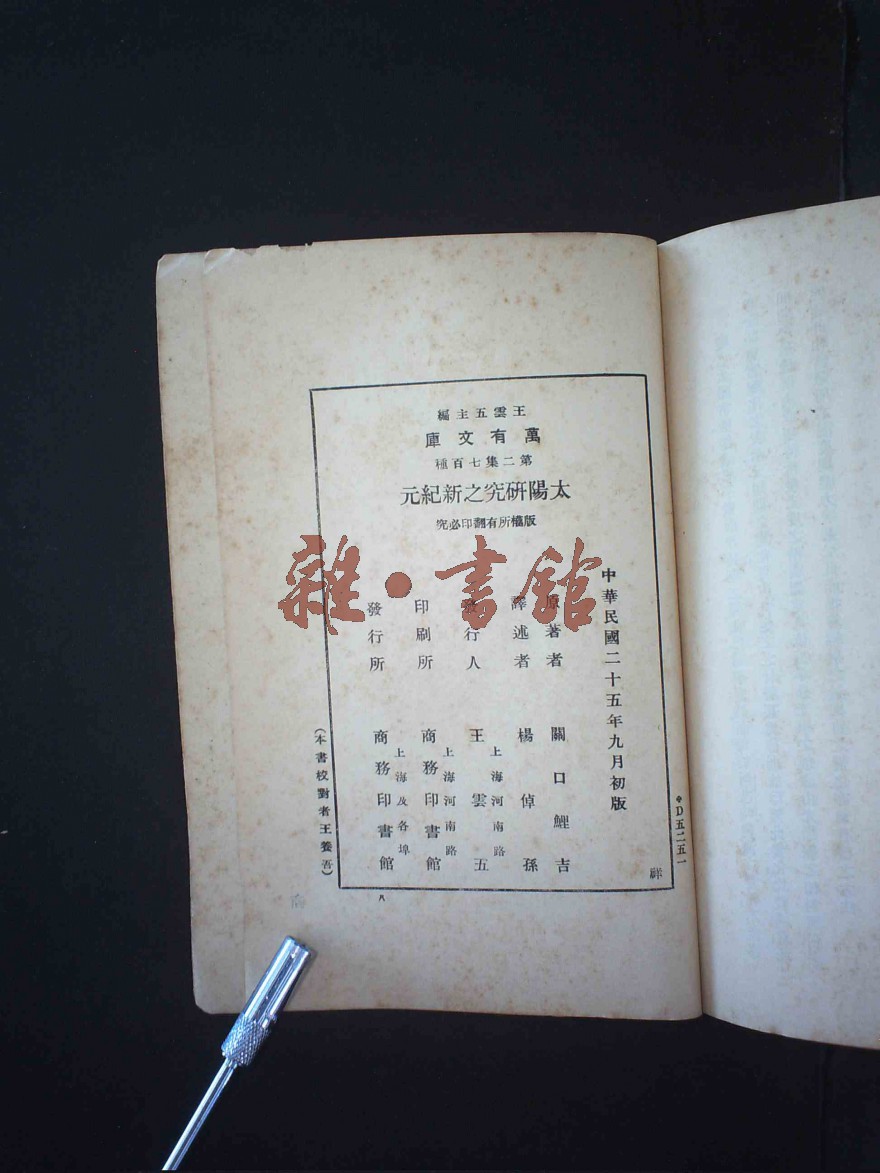 王雲五主編
萬有文庫
第二集七百種
太陽研究之新紀元
版權所有翻印必究
中華民國二十五年九月初版
原著者 關口鯉吉
譯述者 楊倬孫
發行人 王雲五
上海河南路
印刷所 商務印書館
上海河南路
發行所 商務印書館
上海及各埠
(本書校對者王養吾)
D五二五一
祥
八
雜·書館